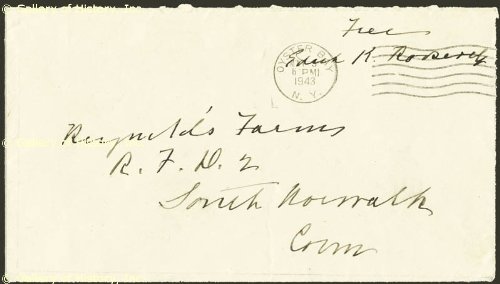 © Gallery of History, Inc.
Free
Edith K. Roosevelt
OYSTER BAY
6 PM
1943
N. Y.
Reynold's Farms
R. F. D. 2
South Norwalk
Conn
© Gallery of History, Inc.